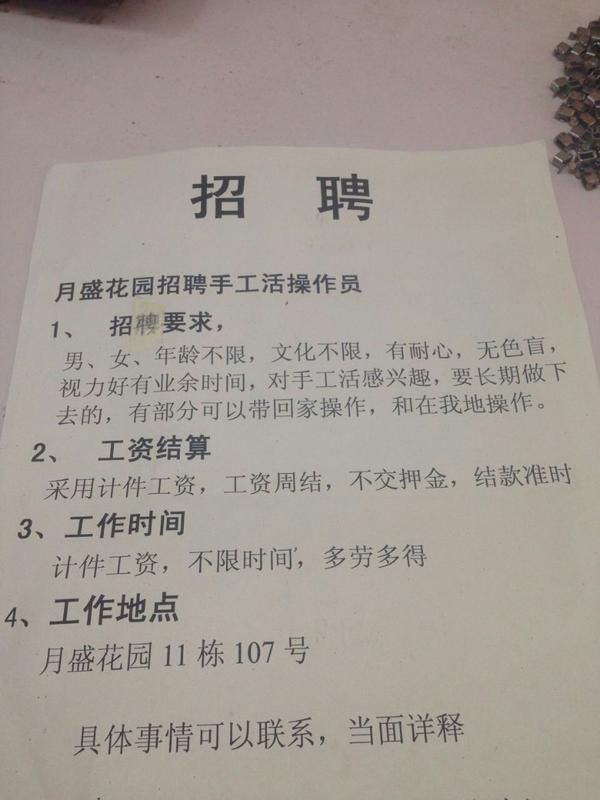 招 聘
月盛花园招聘手工活操作员
1、 招聘要求，
男、女、年龄不限，文化不限，有耐心，无色盲，
视力好有业余时间，对手工活感兴趣，要长期做下
去的，有部分可以带回家操作，和在我地操作。
2、 工资结算
采用计件工资，工资周结，不交押金，结款准时
3、工作时间
计件工资，不限时间，多劳多得
4、工作地点
月盛花园 11 栋 107 号
具体事情可以联系，当面详释